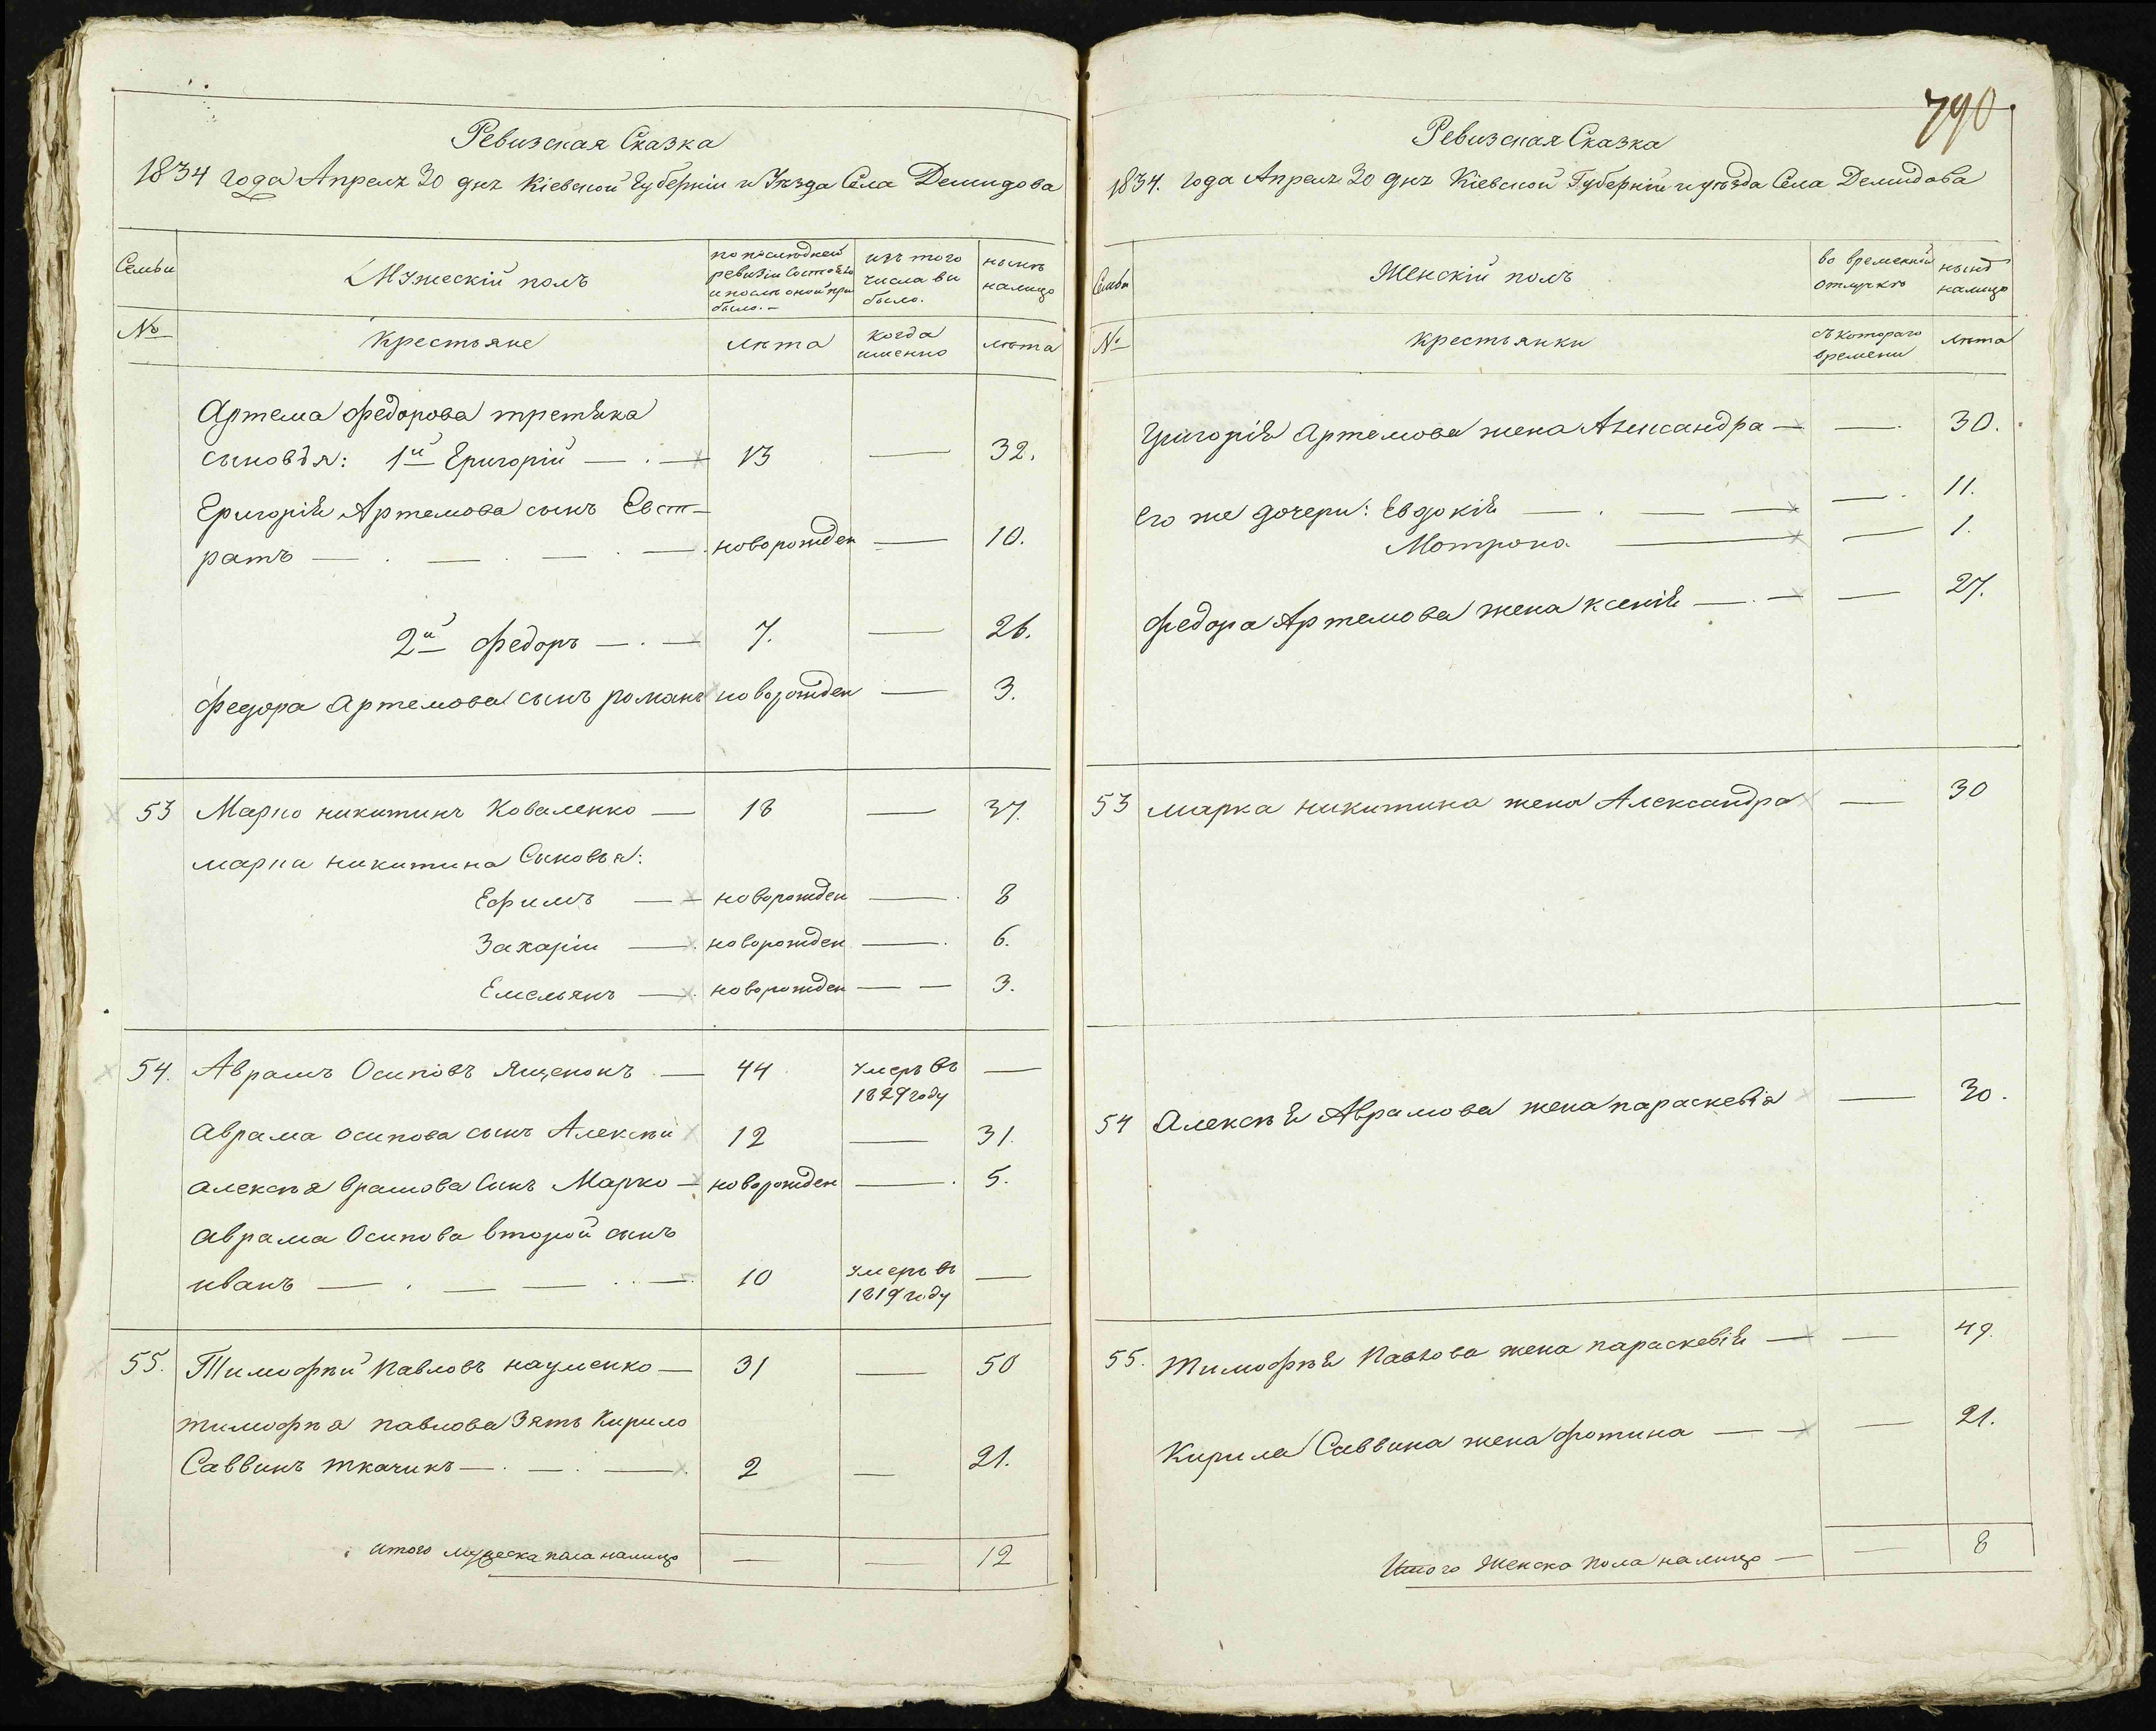 Ревизская Сказка
1834 года Апреля 30 дня Кіевской Губерніи и Уѣзда Села Демидова
Семьи
Мужескій полъ
по последней ревизіи Состояло и после оной прибыло. —
изъ того числа выбыло.
нынѣ налицо
№
Крестьяне
лѣта
когда именно
лѣта
Артема Федорова третяка
сыновья: 1й Григорій — . — 13 — 32.
Григорія Артемова сынъ Евст-
ратъ — . — . — . — новорожден — 10.
2й Федоръ — . — 7. — 26.
Федора Артемова сынъ романъ новорожден — 3.
53 Марко никитинъ Коваленко — 18 — 37.
марка никитина Сыновья:
Ефимъ — новорожден — 8
Захарій — новорожден — 6.
Емельянъ — новорожден — — 3.
54. Аврамъ Осиповъ Ященокъ — 44 умеръ въ 1829 году —
Аврама осипова сынъ Алексѣй 12 — 31.
алексѣя врамова Сынъ Марко — новорожден — 5.
аврама Осипова второй сынъ
иванъ — . — — . . — 10 умеръ въ 1819 году —
55. Тимофѣй Павловъ науменко — 31 — 50
тимофѣя павлова Зять Кирило
Саввинъ ткачикъ — . — . — 2 — 21.
итого мужеска пола налицо — — 12
790
Ревизская Сказка
1834. года Апреля 30 дня Кіевской Губерніи и уѣзда Села Демидова
Семьи
Женскій полъ
во временной отлучкѣ
нынѣ налицо
№
крестьянки
съ котораго времени
лѣта
Григорія Артемова жена Александра — — . 30.
Его же дочери: Евдокія — . — — — . 11.
Мотрона — — 1.
Федора Артемова жена ксенія — . — — 27.
53 марка никитина жена Александра — 30
54 Алексѣя Аврамова жена параскевія — 30.
55. Тимофѣя Павлова жена параскевія — — 49.
Кирила Саввина жена фотина — — — 21.
Итого Женска Пола налицо — — 8